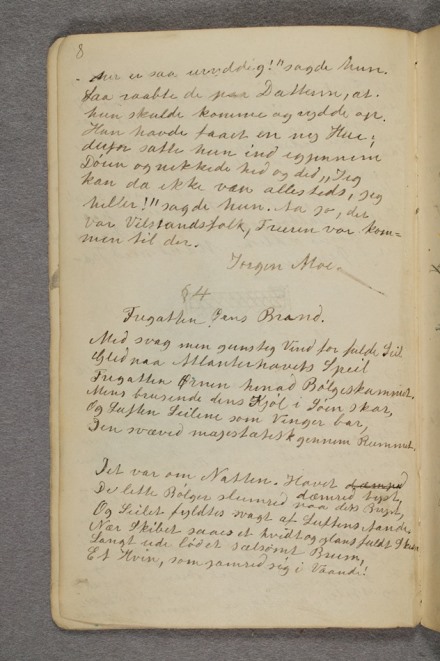 8
her er saa uryddig!" sagde hun.
Saa raabte de paa Datteren, at
hun skulde komme og rydde op.
Hun havde faaet en ny Hue;
derfor satte hun ind igjennem
Døren og nikkede hid og did, "Jeg
kan da ikke være allesteds, jeg
heller!" sagde hun. Aa jo, der
var Velstandsfolk, Freeren var kom=
men til der.
Jørgen Moe.
64
Fregatten Ørns Brand.
Med svag men gunstig Vind for fulde Seil
Gled paa Atlanterhavets Speil
Fregatten Ørnen henad Bølgeskummet.
Mens brusende dens Kjøl i Søen skar,
Og Luften Seilene som Vinger bar,
Den svæved majestætisk gennem Rummet.
Det var om Natten. Havet dæmred
dæmred tyst,
De lette Bølger slumred paa dets Bryst,
Og Seilet fyldtes svagt af Luftens Aande.
Nær Skibet saaes et hvidt og glansfuldt Skum
Langt ude lød et sælsomt Brum,
Et Hvin, som jamred sig i Vaande!